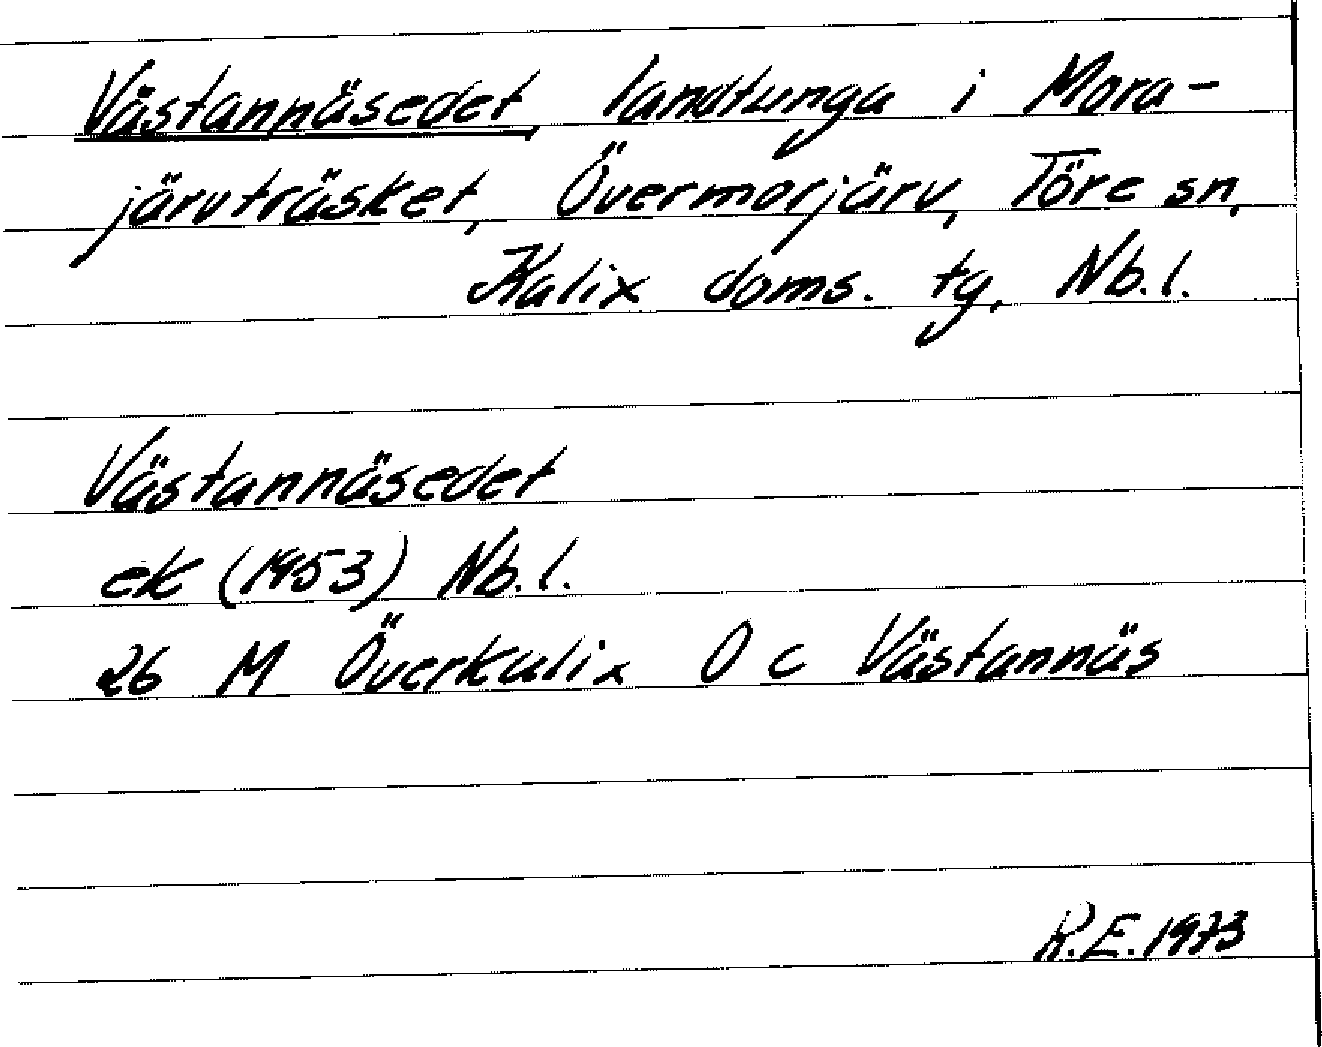 Västannäsedet, landtunga i Mora-
järvträsket, Övermorjärv, Töre sn,
Kalix doms. tg, Nb. l.
Västannäsedet
ek (1953) Nb. l.
26 M Överkalix O c Västannäs
R.E. 1973